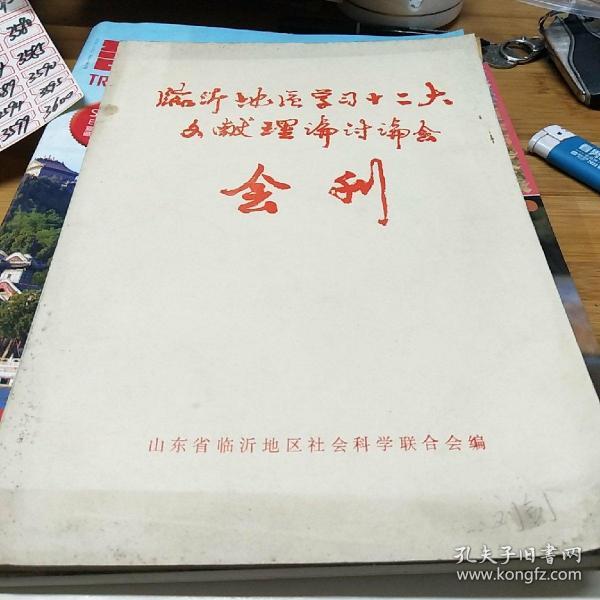 临沂地区学习十二大
文献理論讨論会
会刊
山东省临沂地区社会科学联合会编
刘剑
孔夫子旧书网
www.kongfz.com
TR
3584
3590
3595
3600
3599